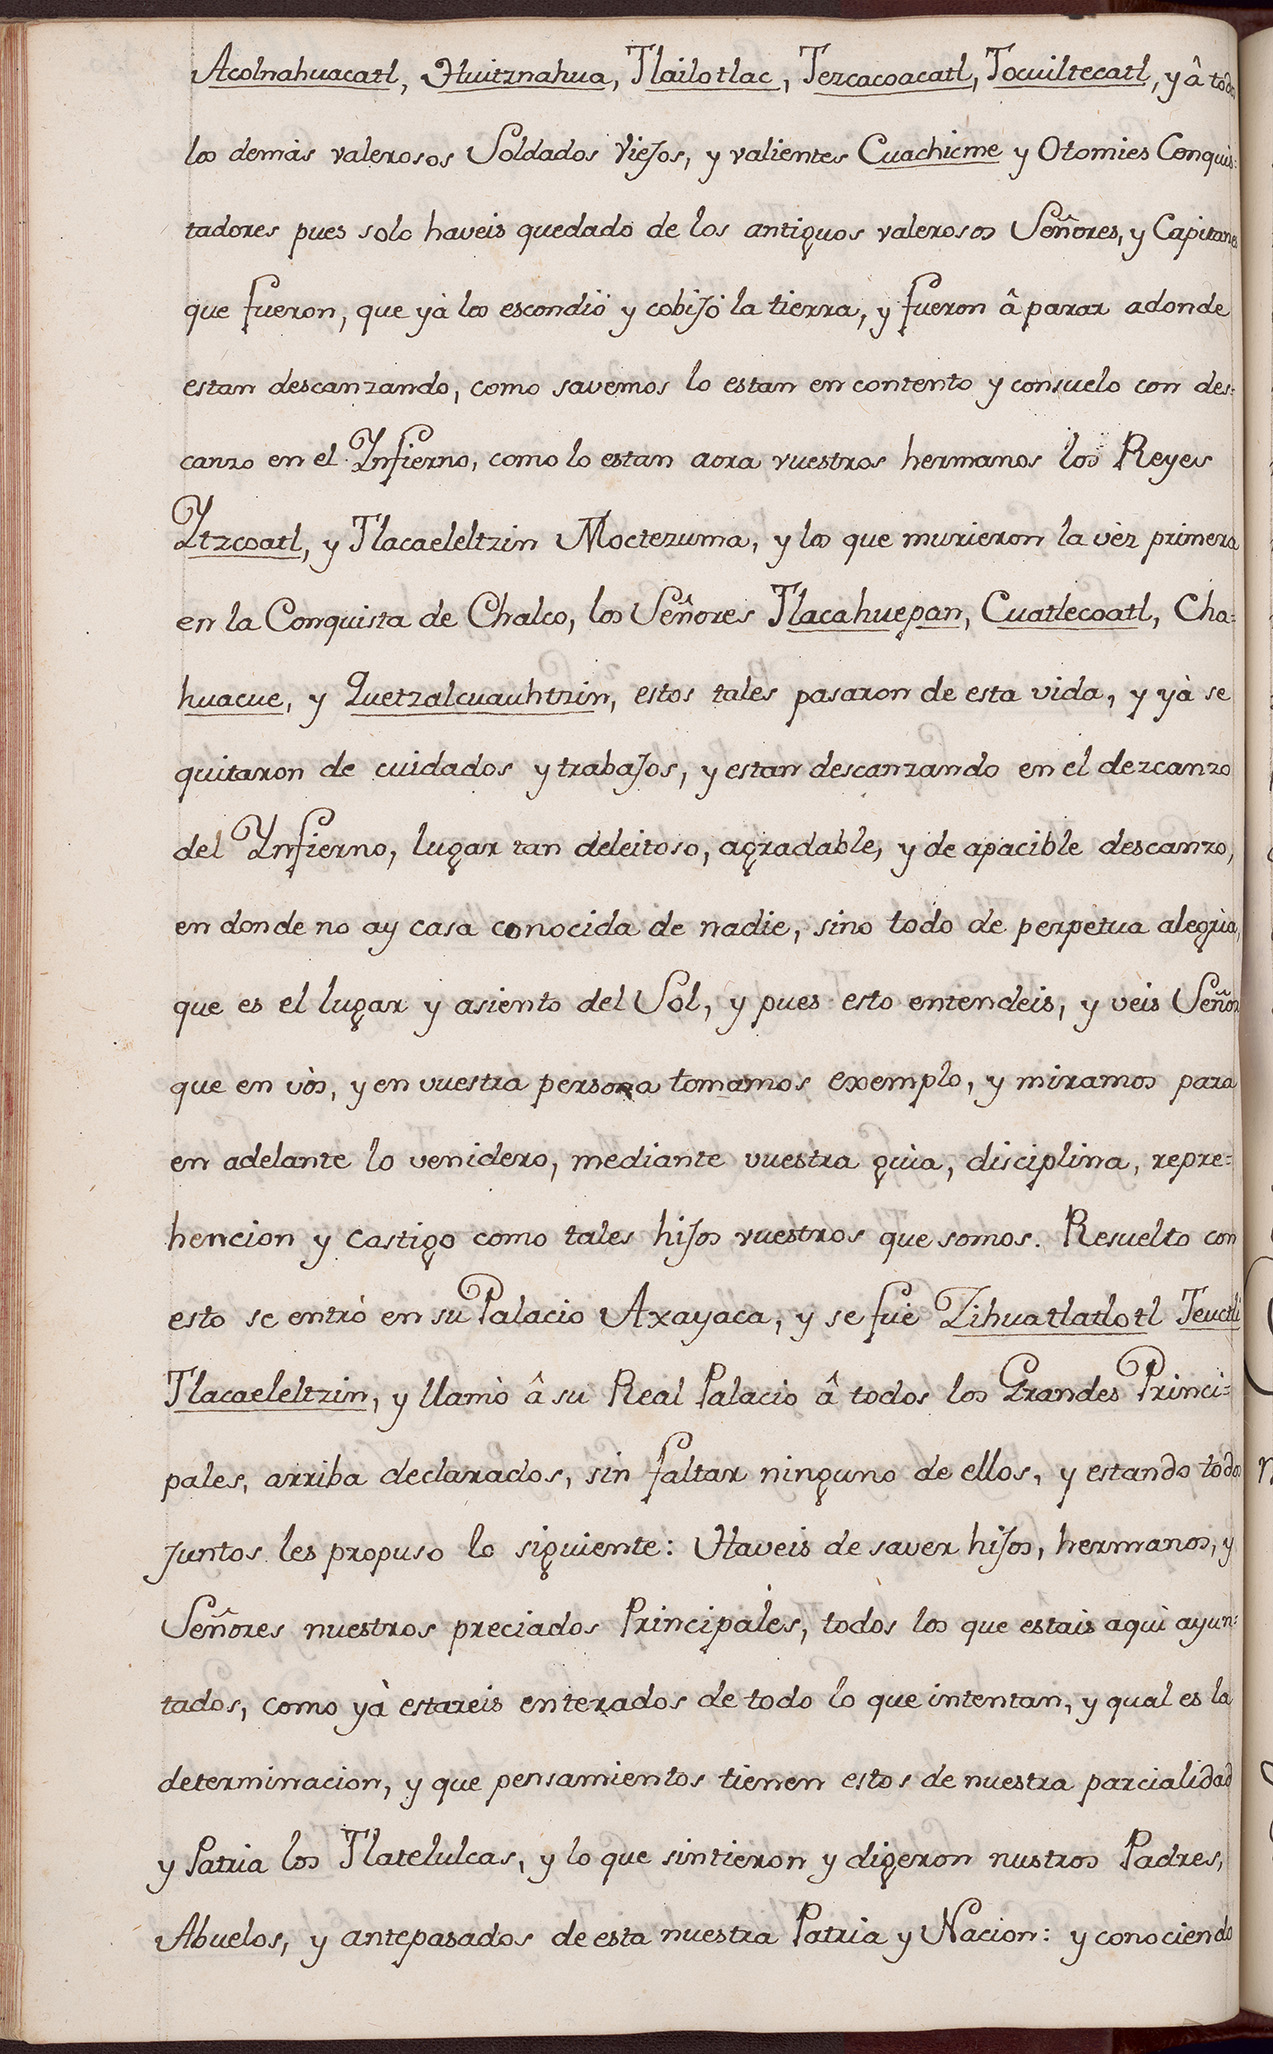 Acolnahuacatl, Huitznahua, Tlailotlac, Tezcacoacatl, Tocuiltecatl, y â todos
los demàs valerosos Soldados Viejos, y valientes Cuachicme y Otomies Conquis=
tadores pues solo haveis quedado de los antiguos valerosos Señores, y Capitanes
que fueron, que yà los escondiò y cobijò la tierra, y fueron â parar adonde
estan descanzando, como savemos lo estan en contento y consuelo con des=
canzo en el Ynfierno, como lo estan aora vuestros hermanos los Reyes
Ytzcoatl, y Tlacaeleltzin Moctezuma, y los que murieron la vèz primera
en la Conquista de Chalco, los Señores Tlacahuepan, Cuatlecoatl, Cha=
huacue, y Quetzalcuauhtzin, estos tales pasaron de esta vida, y yà se
quitaron de cuidados y trabajos, y estan descanzando en el dezcanzo
del Ynfierno, lugar tan deleitoso, agradable, y de apacible descanzo,
en donde no ay casa conocida de nadie, sino todo de perpètua alegrìa,
que es el lugar y asiento del Sol, y pues esto entendeis, y vèis Señor
que en vòs, y en vuestra persona tomamos exemplo, y miramos para
en adelante lo venidero, mediante vuestra guìa, disciplina, repre=
hencion y castigo como tales hijos vuestros que somos. Resuelto con
esto se entrò en su Palacio Axayaca, y se fuè Zihuatlatlotl Teuctli
Tlacaeleltzin, y llamò â su Real Palacio â todos los Grandes Princi=
pales, arriba declarados, sin faltar ninguno de ellos, y estando todos
juntos les propuso lo siguiente: Haveis de saver hijos, hermanos, y
Señores nuestros preciados Principales, todos los que estais aquì ayun=
tados, como yà estareis enterados de todo lo que intentan, y qual es la
determinacion, y que pensamientos tienen estos de nuestra parcialidad
y Patria los Tlatelulcas, y lo que sintieron y digeron nustros Padres,
Abuelos, y antepasados de esta nuestra Patria y Nacion: y conociendo